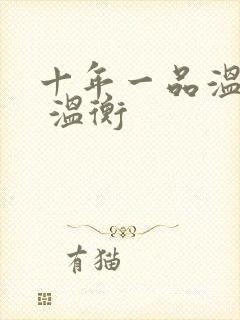 十年一品温
温衡
有猫